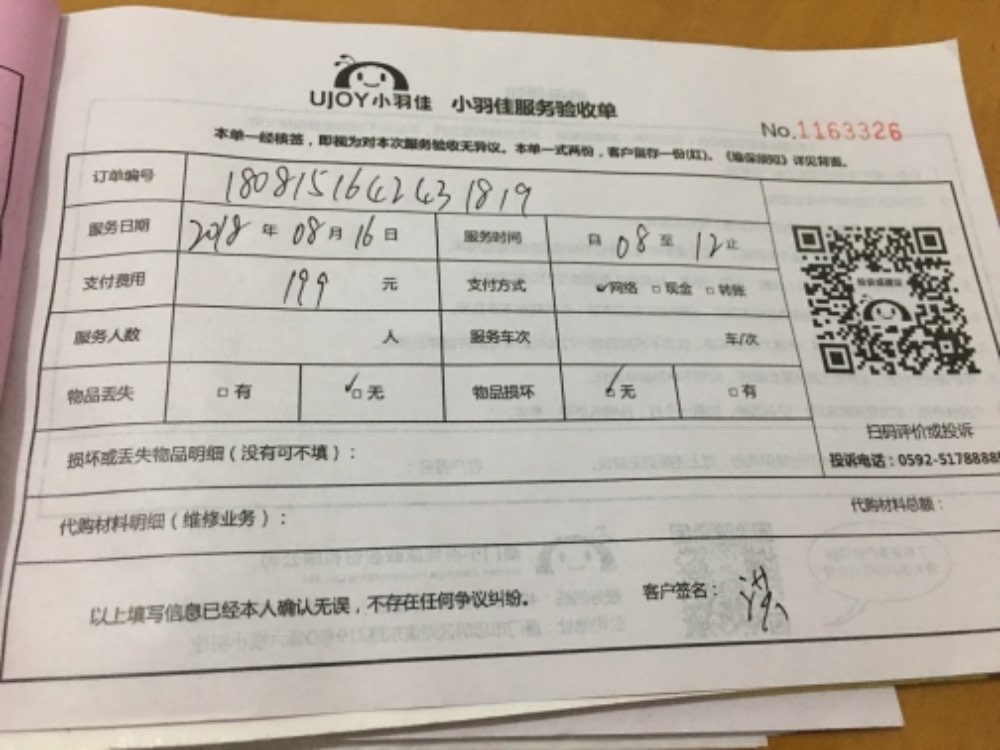 UJOY小羽佳 小羽佳服务验收单
No.1163326
本单一经核签，即视为对本次服务验收无异议。本单一式两份，客户留存一份(红)。《维保须知》详见背面。
订单编号 1808151642431819
服务日期 2018 年 08 月 16 日 服务时间 自 08 至 12 止
支付费用 199 元 支付方式 ✓网络 □现金 □转账
服务人数 人 服务车次 车/次
物品丢失 □有 ✓□无 物品损坏 ✓□无 □有
扫码评价或投诉
投诉电话：0592-5178888
损坏或丢失物品明细（没有可不填）：
代购材料明细（维修业务）： 代购材料总额：
以上填写信息已经本人确认无误，不存在任何争议纠纷。 客户签名：